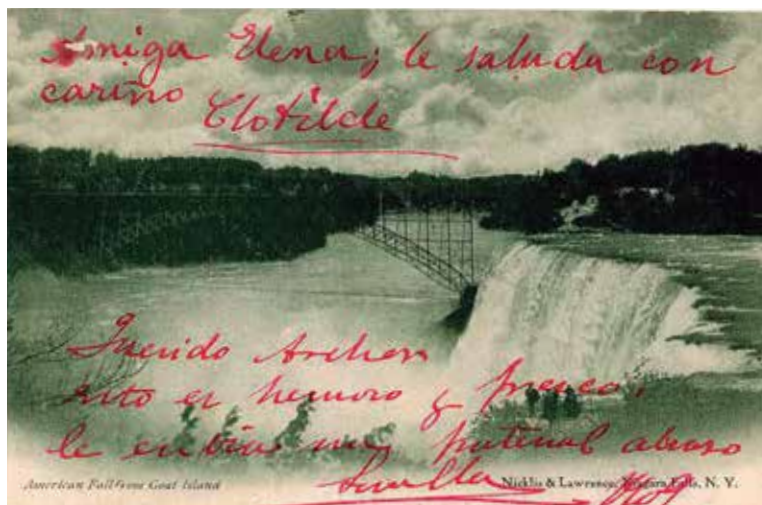 Amiga Elena; le saluda con
cariño Clotilde
Querido Archer
esto es hermoso y fresco,
le envia un fraternal abraso
Sorolla 1909
American Fall from Goat Island
Nicklis & Lawrence, Niagara Falls, N. Y.